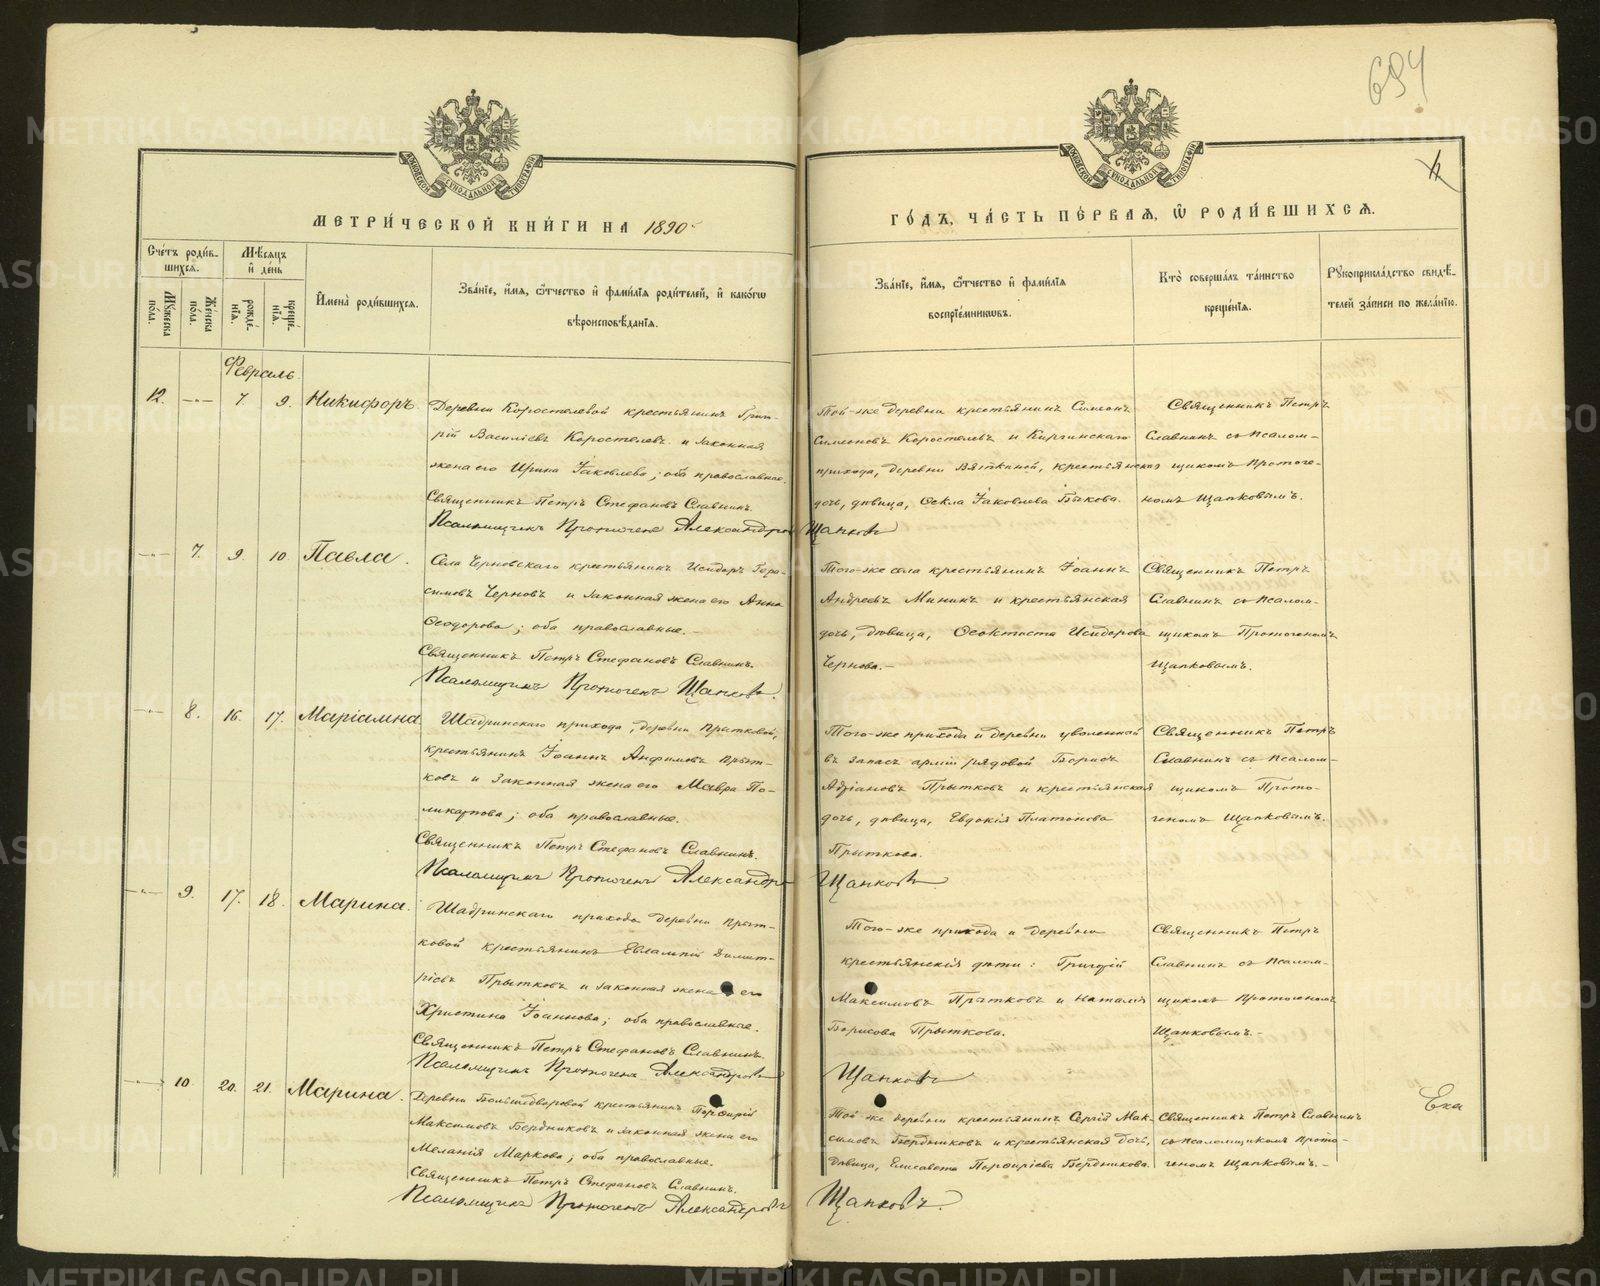 694
МОСКОВСКОЙ СѴНОДАЛЬНОЙ ТИПОГРАФІИ
МОСКОВСКОЙ СѴНОДАЛЬНОЙ ТИПОГРАФІИ
МЕТРИ́ЧЕСКОЙ КНИ́ГИ НА 1890
ГО́ДЪ, ЧА́СТЬ ПЕ́РВАЯ, Ѿ РОДИ́ВШИХСЯ.
Сче́тъ роди́в-
шихся.
Мꙋ́жеска по́ла.
Же́нска по́ла.
Мѣ́сяцъ и҆ де́нь
рожде́-
нія.
креще́-
нія.
И҆мена̀ роди́вшихся.
Зва́ніе, и҆́мя, ѻ҆́тчество и҆ фами́лія роди́телей, и҆ како́гѡ
вѣроисповѣ́данія.
Зва́ніе, и҆́мя, ѻ҆́тчество и҆ фами́лія
воспрїе́мникѡвъ.
Кто̀ соверша́лъ та́инство
креще́нія.
Рꙋкоприкла́дство свидѣ́-
телей за́писи по жела́нію.
Февраль
12. 7. 9. Никифоръ.
Деревни Коростелевой крестьянинъ Григо-
рій Василіевъ Коростелевъ и законная
жена его Ирина Іаковлева; оба православные.
Священникъ Петръ Стефановъ Славнинъ.
Псаломщикъ Протогенъ Александровъ Щапковъ
Той-же деревни крестьянинъ Симеонъ
Симеоновъ Коростелевъ и Киргинскаго
прихода, деревни Вяткиной, крестьянская
дочь, дѣвица, Ѳекла Іаковлева Быкова.
Священникъ Петръ
Славнинъ съ псалом-
щикомъ Протоге-
номъ Щапковымъ.
7. 9. 10. Павла.
Села Черновскаго крестьянинъ Исидоръ Гера-
симовъ Черновъ и законная жена его Анна
Ѳеодорова; оба православные.
Священникъ Петръ Стефановъ Славнинъ.
Псаломщикъ Протогенъ Щапковъ.
Того-же села крестьянинъ Іоаннъ
Андреевъ Мининъ и крестьянская
дочь, дѣвица, Ѳеоктиста Исидорова
Чернова.
Священникъ Петръ
Славнинъ съ псалом-
щикомъ Протогеномъ
Щапковымъ.
8. 16. 17. Маріамна
Шадринскаго прихода, деревни Прытковой,
крестьянинъ Іоаннъ Анфимовъ Прыт-
ковъ и законная жена его Мавра По-
ликарпова; оба православные.
Священникъ Петръ Стефановъ Славнинъ.
Псаломщикъ Протогенъ Александровъ Щапковъ
Того-же прихода и деревни уволенный
въ запасъ арміи рядовой Борисъ
Адріановъ Прытковъ и крестьянская
дочь, дѣвица, Евдокія Платонова
Прыткова.
Священникъ Петръ
Славнинъ съ псалом-
щикомъ Прото-
геномъ Щапковымъ.
9. 17. 18. Марина.
Шадринскаго прихода деревни Прыт-
ковой крестьянинъ Евлампій Димит-
ріевъ Прытковъ и законная жена его
Христина Іоаннова; оба православные.
Священникъ Петръ Стефановъ Славнинъ.
Псаломщикъ Протогенъ Александровъ Щапковъ
Того-же прихода и деревни
крестьянскія дѣти: Григорій
Максимовъ Прытковъ и Наталія
Борисова Прыткова.
Священникъ Петръ
Славнинъ съ псалом-
щикомъ Протогеномъ
Щапковымъ.
10. 20. 21. Марина.
Деревни Большедворовой крестьянинъ Порфирій
Максимовъ Бердниковъ и законная жена его
Меланія Маркова; оба православные.
Священникъ Петръ Стефановъ Славнинъ.
Псаломщикъ Протогенъ Александровъ Щапковъ.
Той же деревни крестьянинъ Сергій Мак-
симовъ Бердниковъ и крестьянская дочь,
дѣвица, Елисавета Порфиріева Бердникова.
Священникъ Петръ Славнинъ
съ псаломщикомъ Прото-
геномъ Щапковымъ.
METRIKI.GASO-URAL.RU